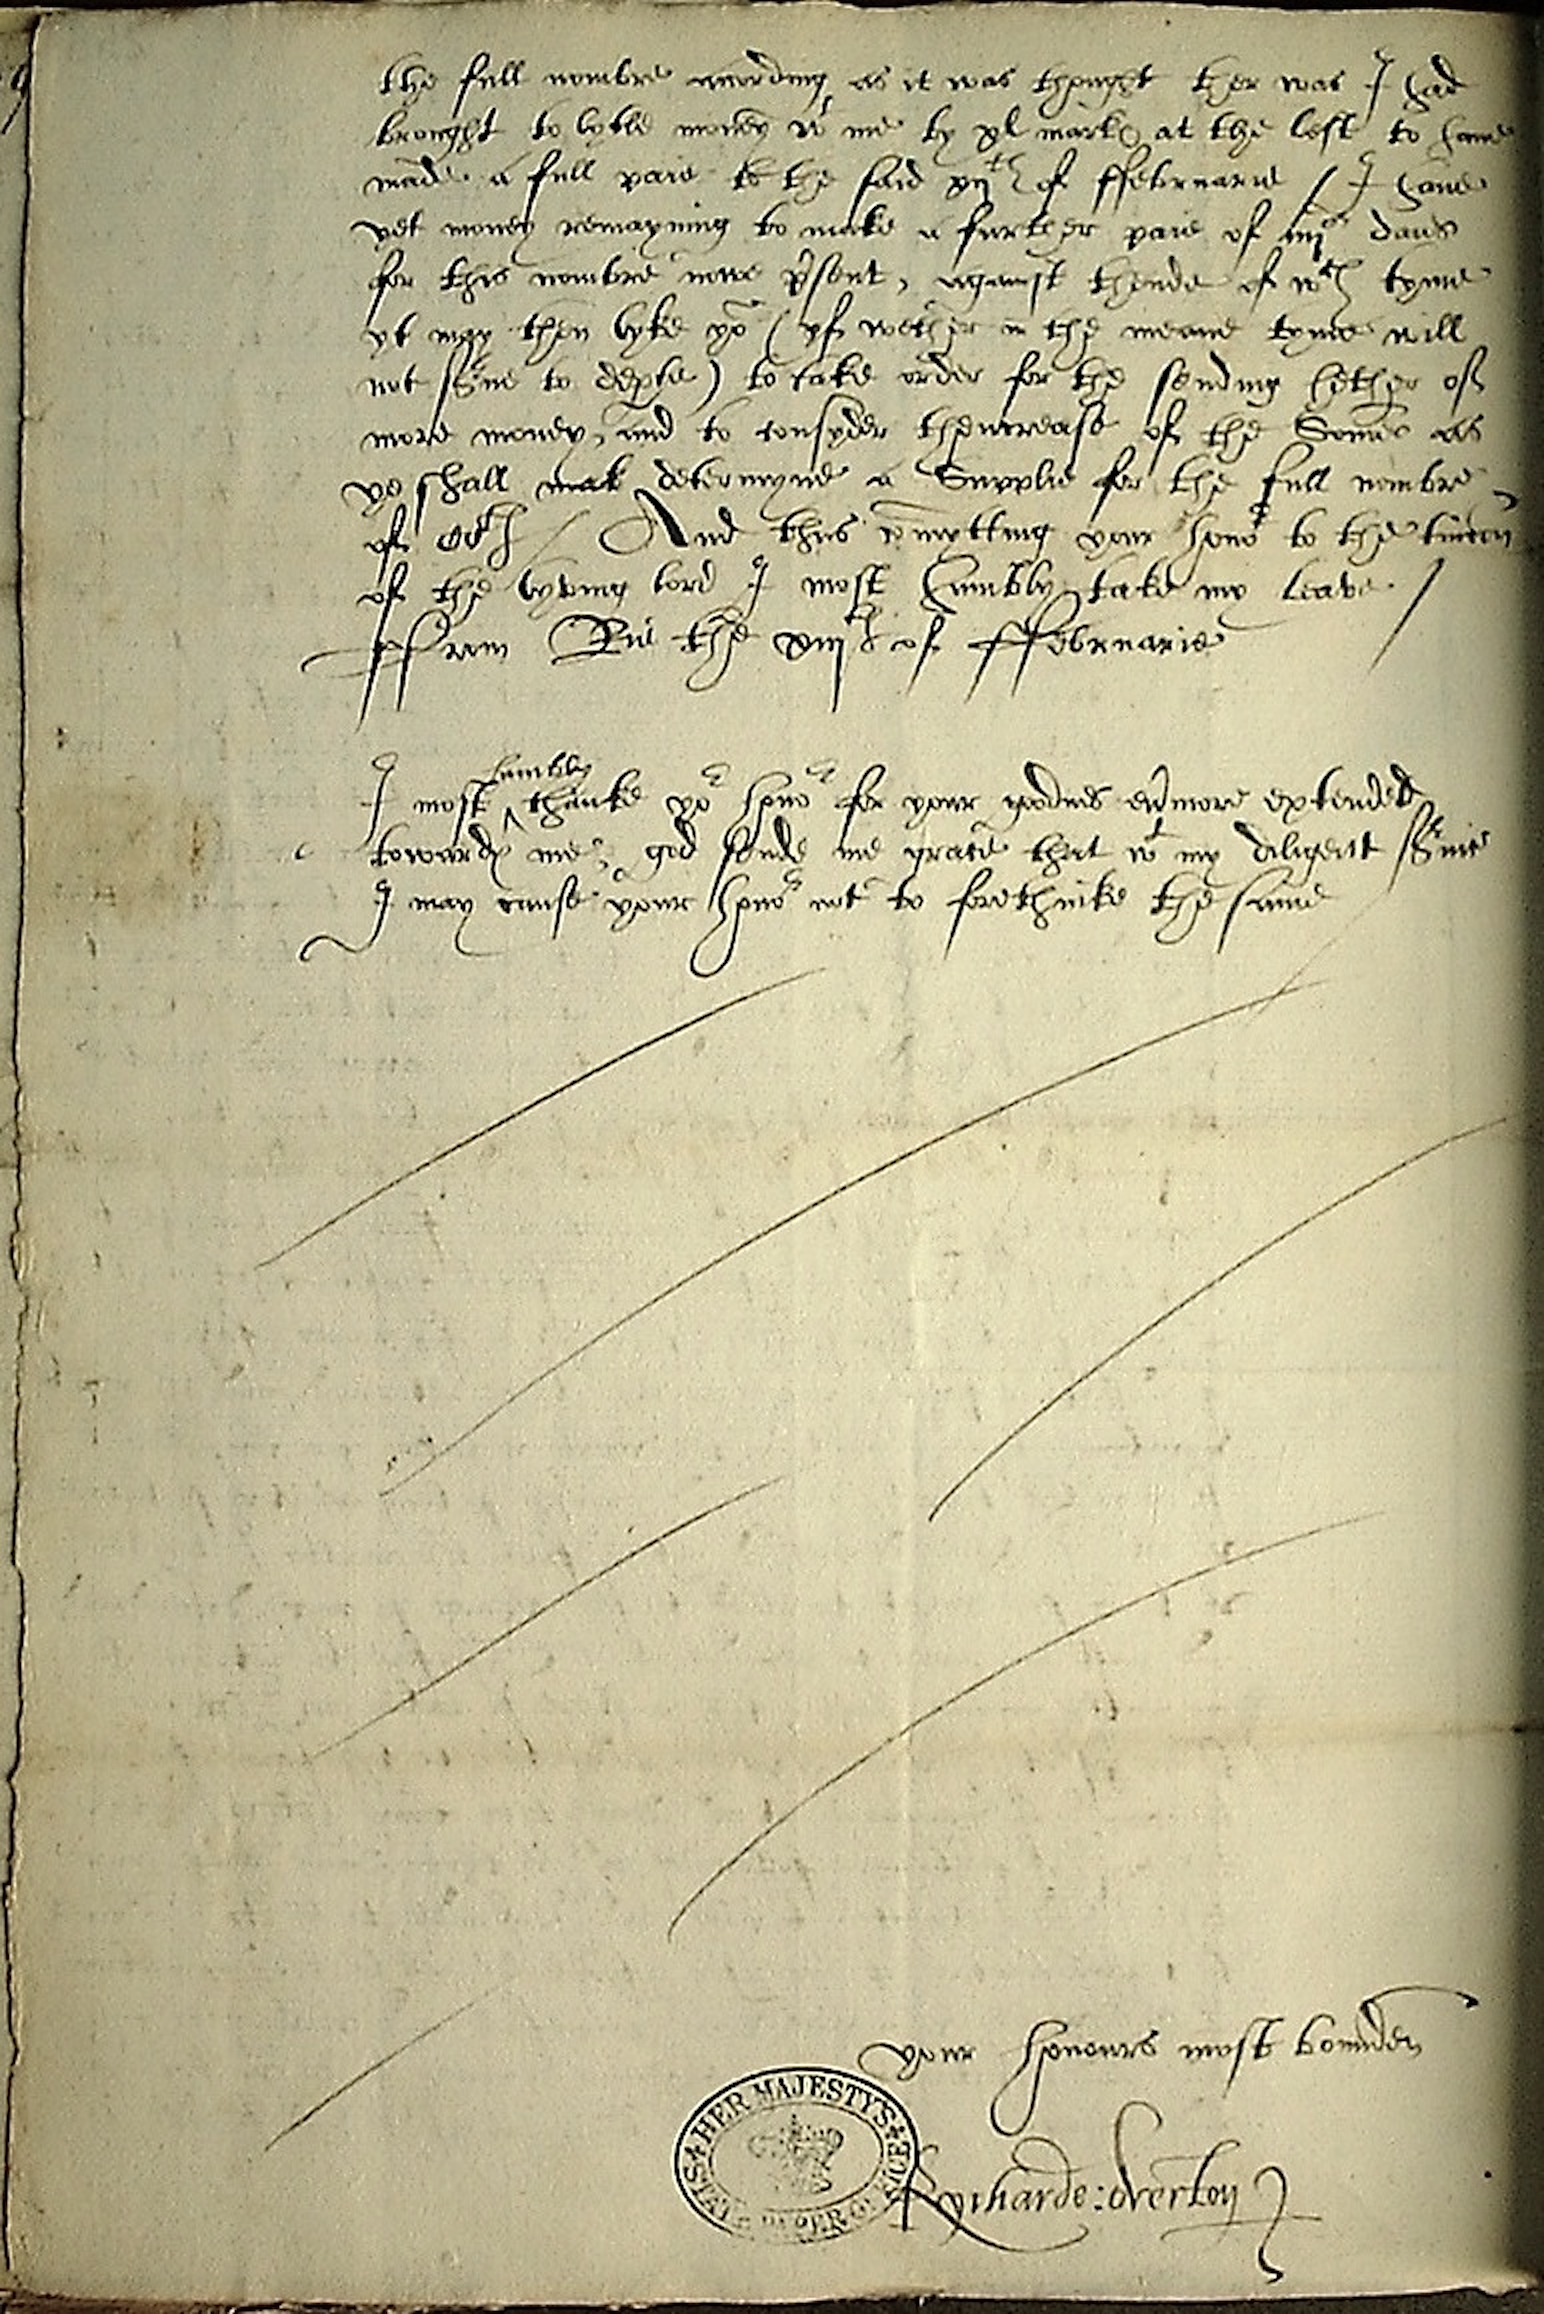 the full nombre according as it was thought ther was I had
brought to lytle money wt me by xl mark at the lest to have
made a full paie to the said xijth of ffebruarie / I have
yet money remayning to make a further paie of daies
for this nombre nowe p'sent, against thende of wch tyme
yt may then lyke yor (yf wether in the meane tyme will
not s've to dep'te) to take order for the sending hether of
more money, and to consyder thencrease of the Somes as
ye shall mak determyne a Supplie for the full nombre
of / And thus comytting your honor to the tuicon
of the lyving lord I most humbly take my leave /
ffrom Rie the xiijth of ffebruarie
humbly
I most ^ thanke yor honor for your goodnes ev'more extended
towards me, god sende me grace that wt my diligent s'vice
I may cause your honor not to forethinke the same
your honours most bounden
Rycharde : Overton
HER MAJESTYS
STATE PAPER OFFICE